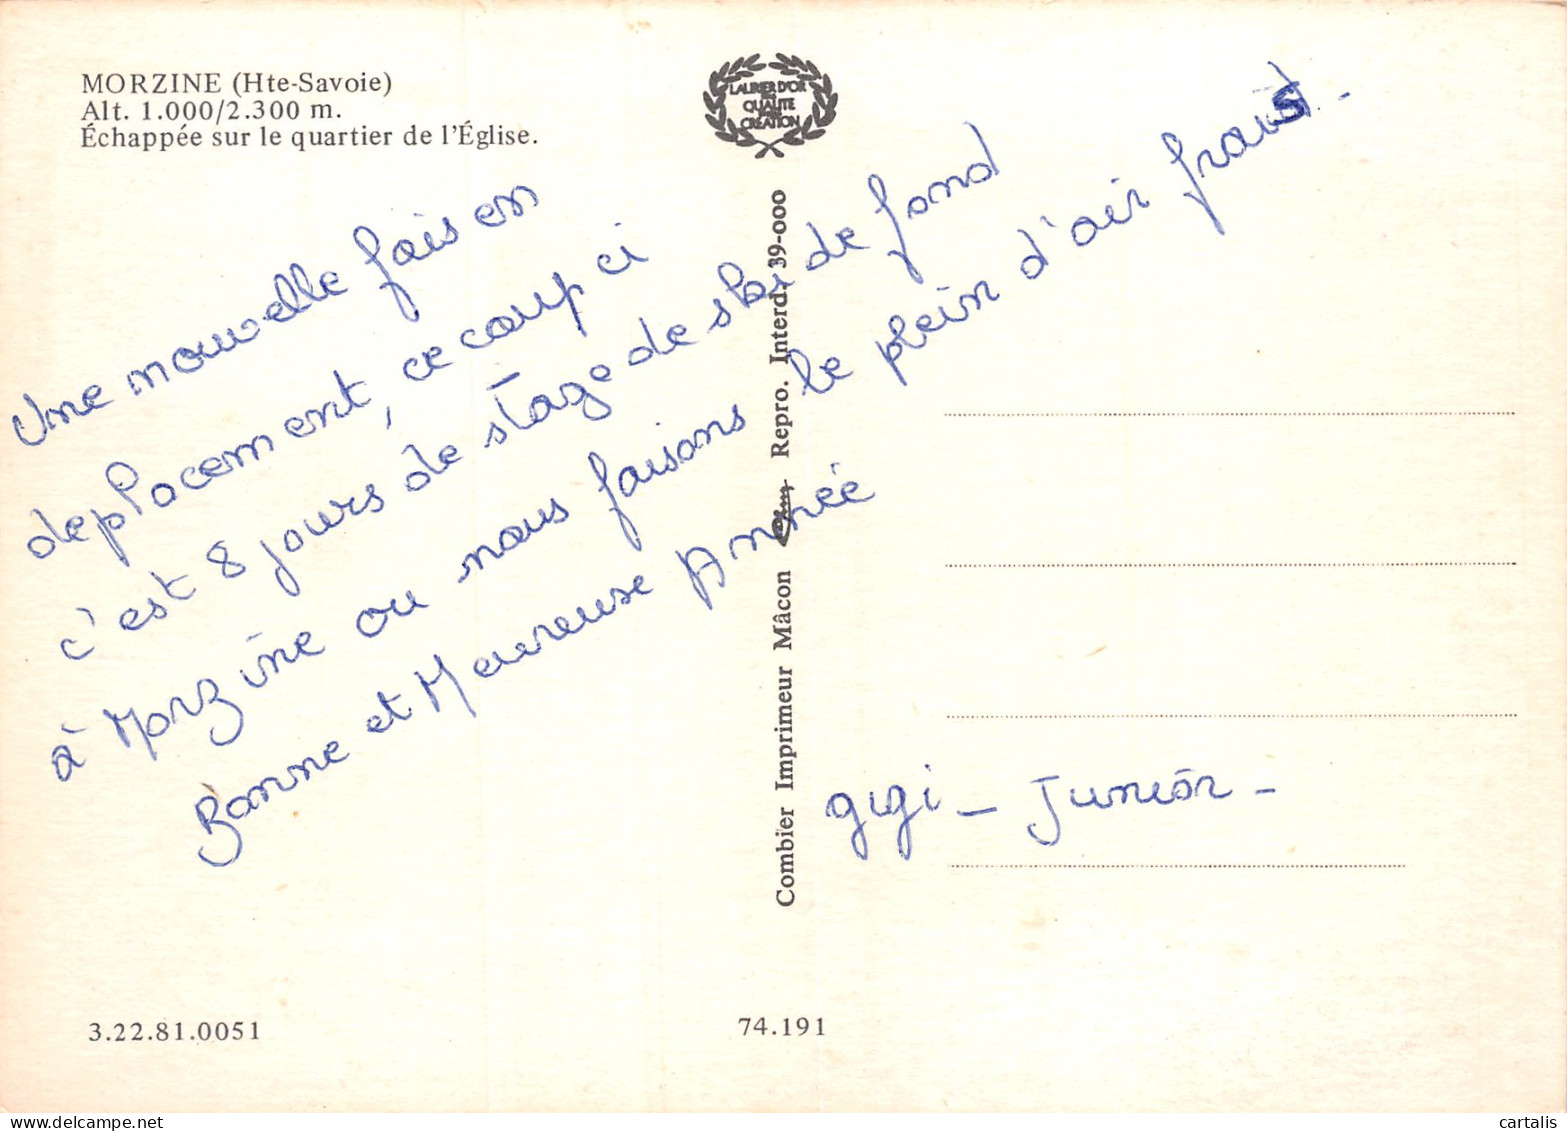 MORZINE (Hte-Savoie)
Alt. 1.000/2.300 m.
Échappée sur le quartier de l'Église.
LAURIER D'OR
DE LA
QUALITE
CREATION
Une nouvelle fois en
deplacement, ce coup ci
c'est 8 jours de stage de ski de fond
à Morzine ou nous faisons le plein d'air frais.
Bonne et Heureuse Année
gigi - Junior -
Combier Imprimeur Mâcon Repro. Interd. 39-000
3.22.81.0051
74.191
cartalis